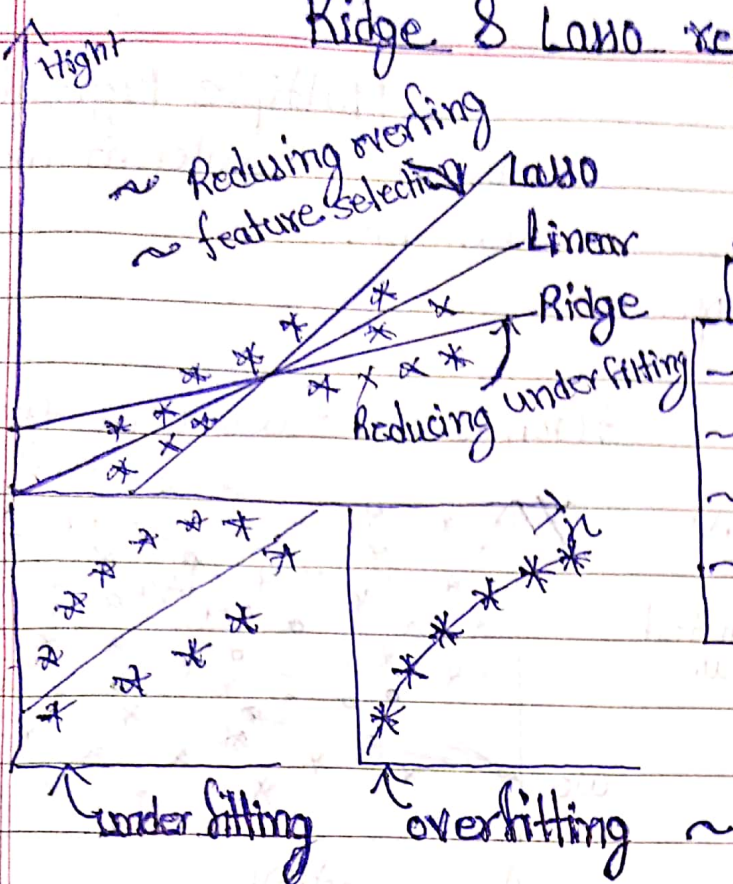 Ridge & Lasso re
Hight
~ Redusing overfing
~ feature selection
Lasso
Linear
Ridge
Reducing underfitting
x
under fitting
overfitting ~